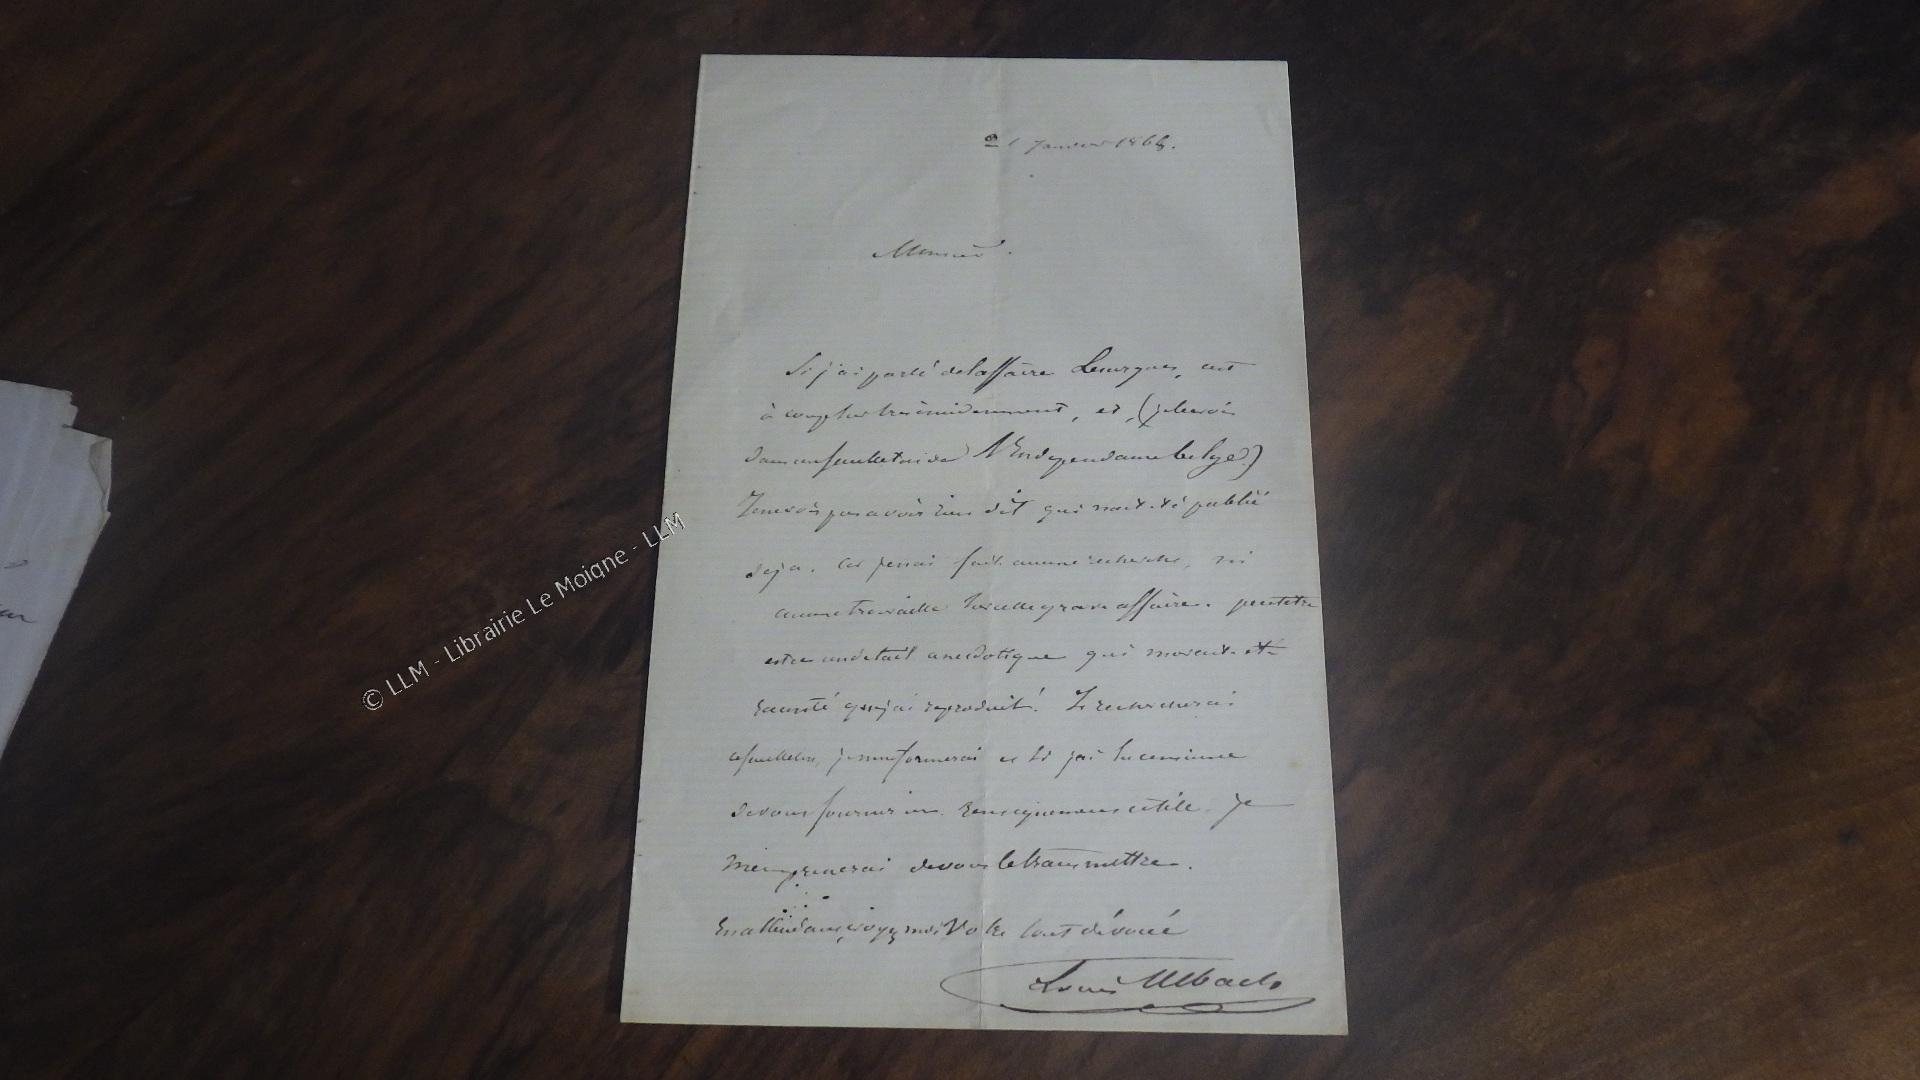 1 Janvier 1868.
Monsieur.
Si j'ai parlé de l'affaire Lesurques, c'est
à coup sur très incidemment, et, (je crois
dans un feuilleton de l'Indépendance belge)
Je ne crois pas avoir rien dit qui n'ait été publié
déja. Car je n'ai fait aucune recherche, ni
aucun travail sur cette grave affaire. peut être
est ce un détail anecdotique qui m'avait été
raconté que j'ai reproduit. Je rechercherai
ce feuilleton, je m'informerai et si j'ai
de vous fournir un renseignement utile. je
m'empresserai de vous le transmettre.
En attendant croyez moi Votre tout dévoué
Louis Ulbach
© LLM - Librairie Le Moigne - LLM